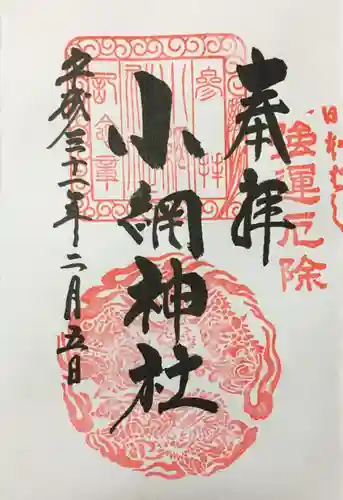 強運厄除
奉拝
小網神社
平成三十一年二月五日